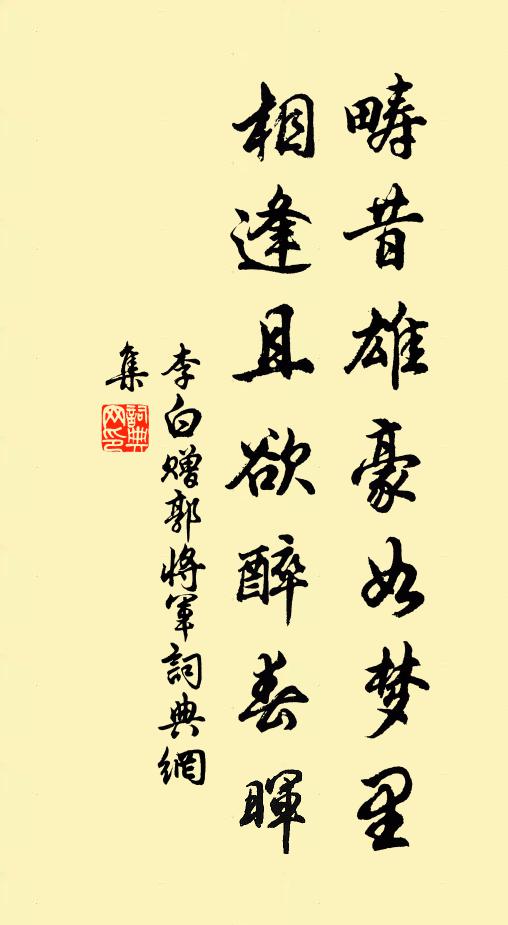 畴昔雄豪如梦里
相逢且欲醉春晖
李白赠郭将军詞典網
集
詞典
网印